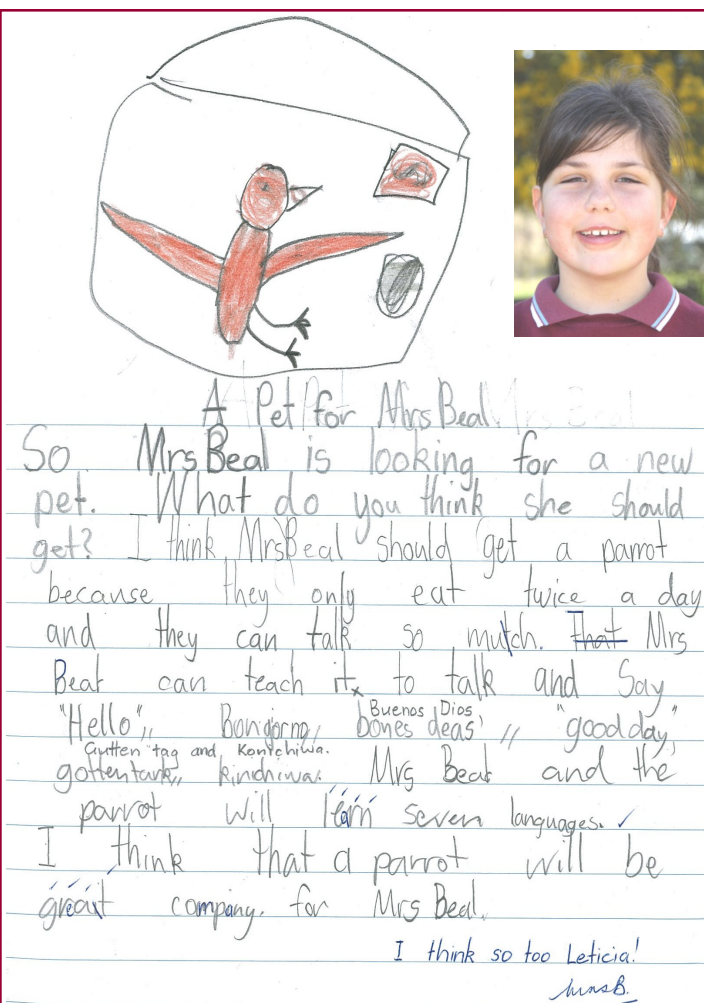 A Pet for Mrs Beal
So Mrs Beal is looking for a new
pet. What do you think she should
get? I think MrsBeal should get a parrot
because they only eat twice a day
and they can talk so mutch. That Mrs
Beal can teach it to talk and Say
Buenos Dios
"Hello",, Bongiorno,, bones deas',, "good day",
Gutten tag and Konichiwa.
gottentark,, kinichiwa. Mrs Beal and the
parrot will learn seven languages. ✓
I think that a parrot will be
great company. for Mrs Beal.
I think so too Leticia!
MrsB.